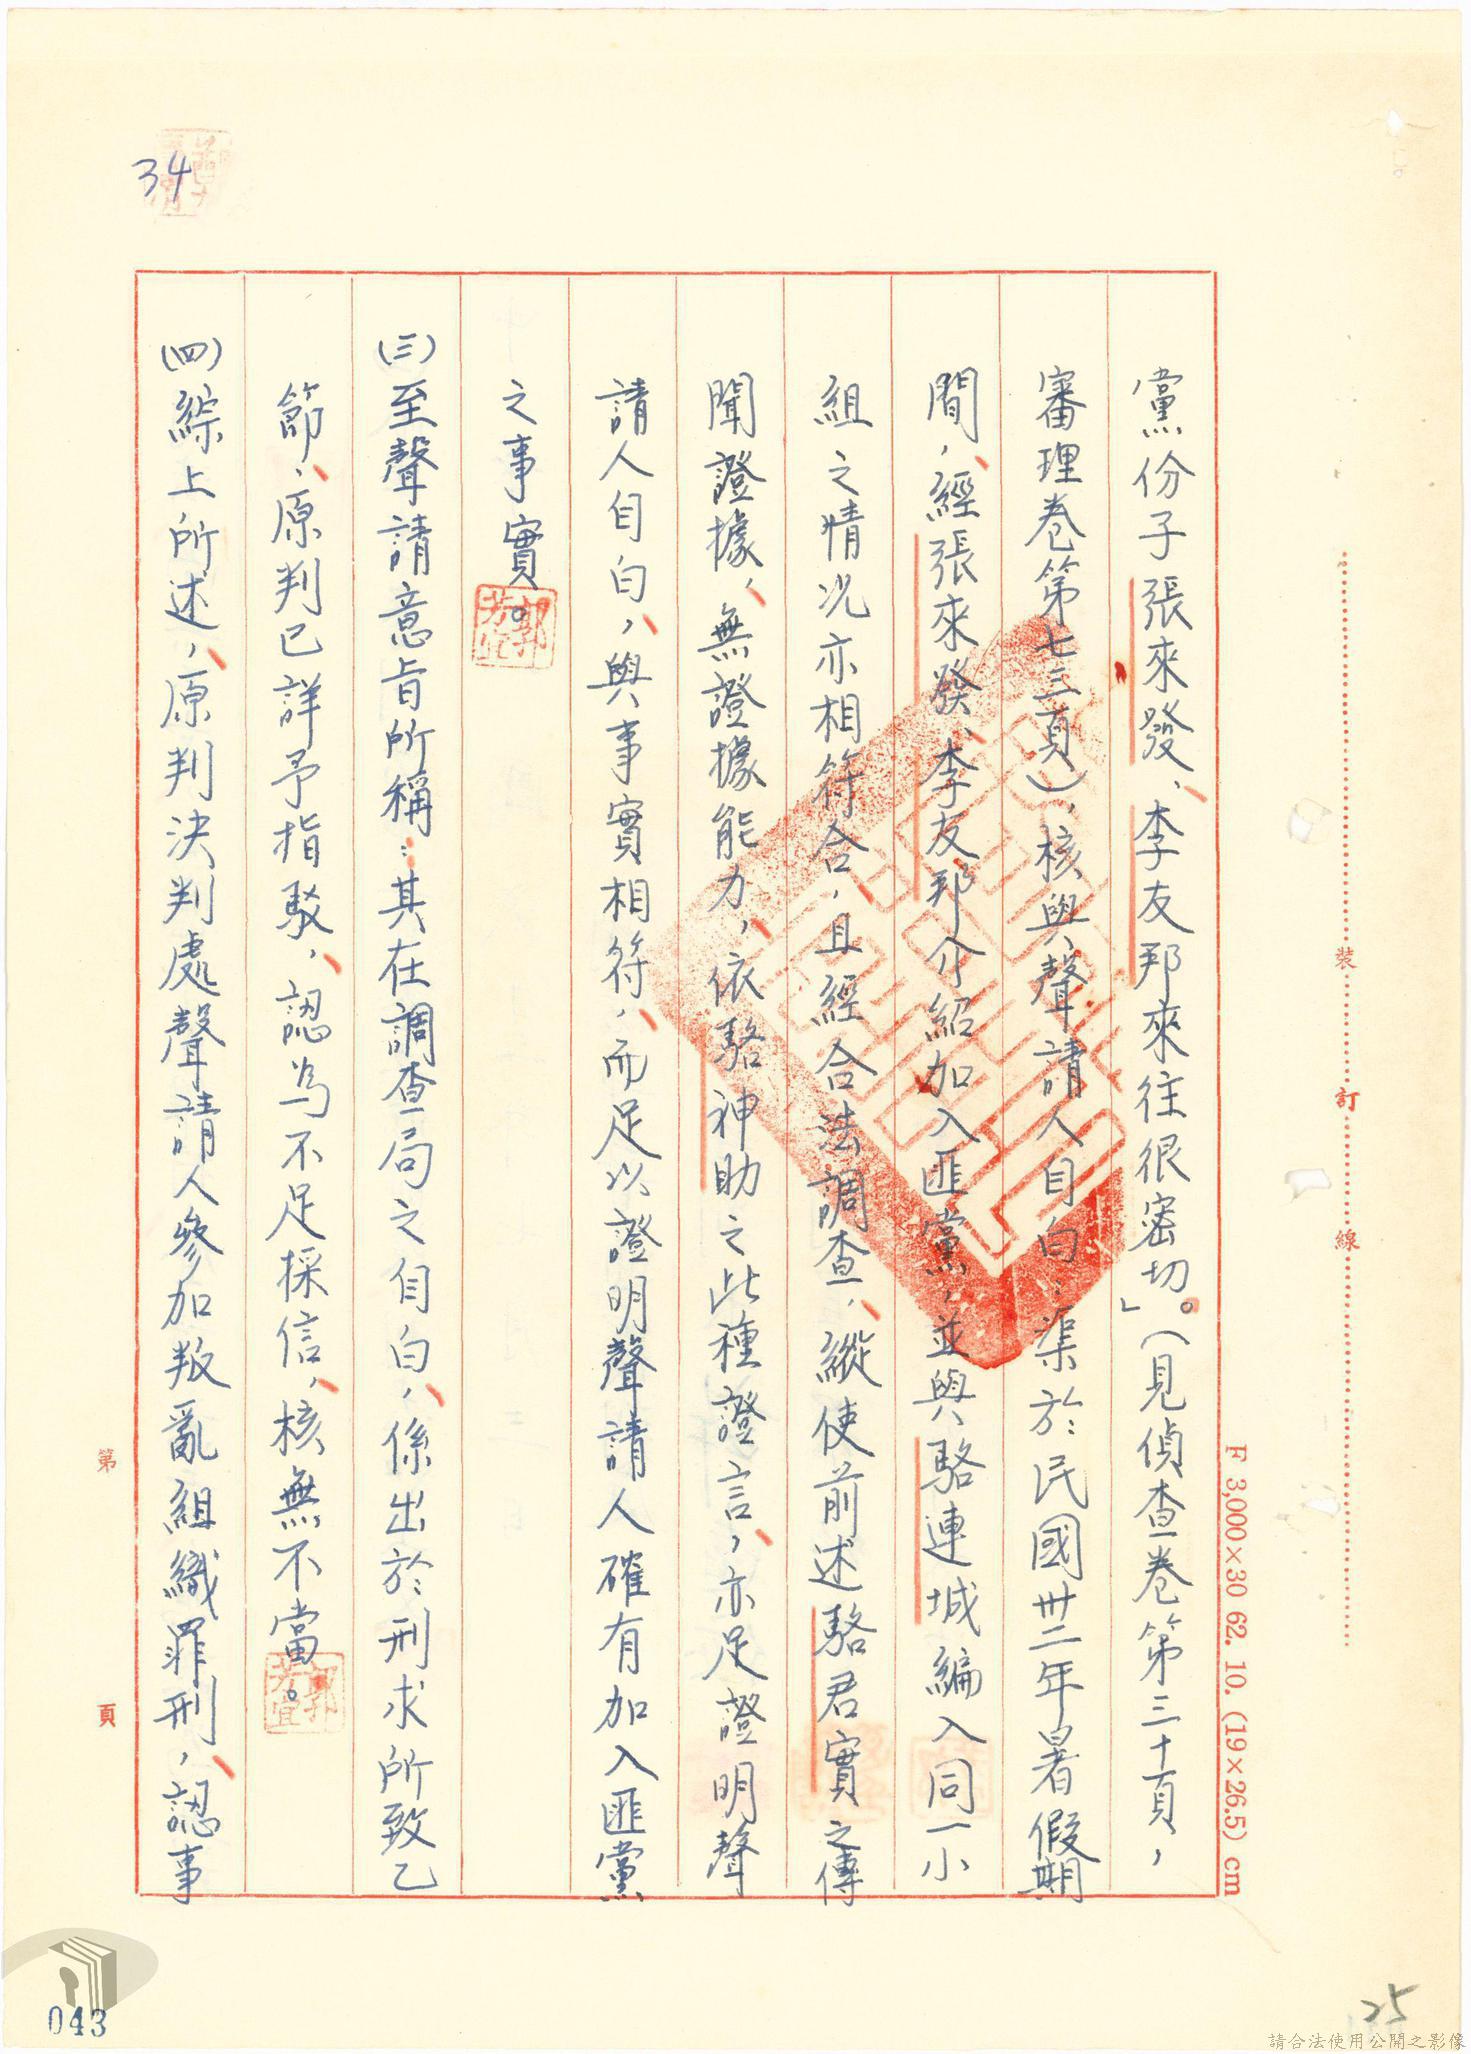 34
黨份子張來發、李友邦來往很密切。」(見偵查卷第三十頁,
審理卷第七三頁),核與聲請人自白:渠於民國卅二年暑假期
間,經張來發、李友邦介紹加入匪黨,並與駱連城編入同一小
組之情況亦相符合,且經合法調查,縱使前述駱君實之傳
聞證據,無證據能力,依駱神助之此種證言,亦足證明聲
請人自白,與事實相符,而足以證明聲請人確有加入匪黨
之事實。
(三)至聲請意旨所稱:其在調查局之自白,係出於刑求所致乙
節,原判已詳予指駁,認為不足採信,核無不當。
(四)綜上所述,原判決判處聲請人參加叛亂組織罪刑,認事
裝
訂
線
F 3,000×30 62. 10. (19×26.5) cm
第
頁
043
25
請合法使用公開之影像